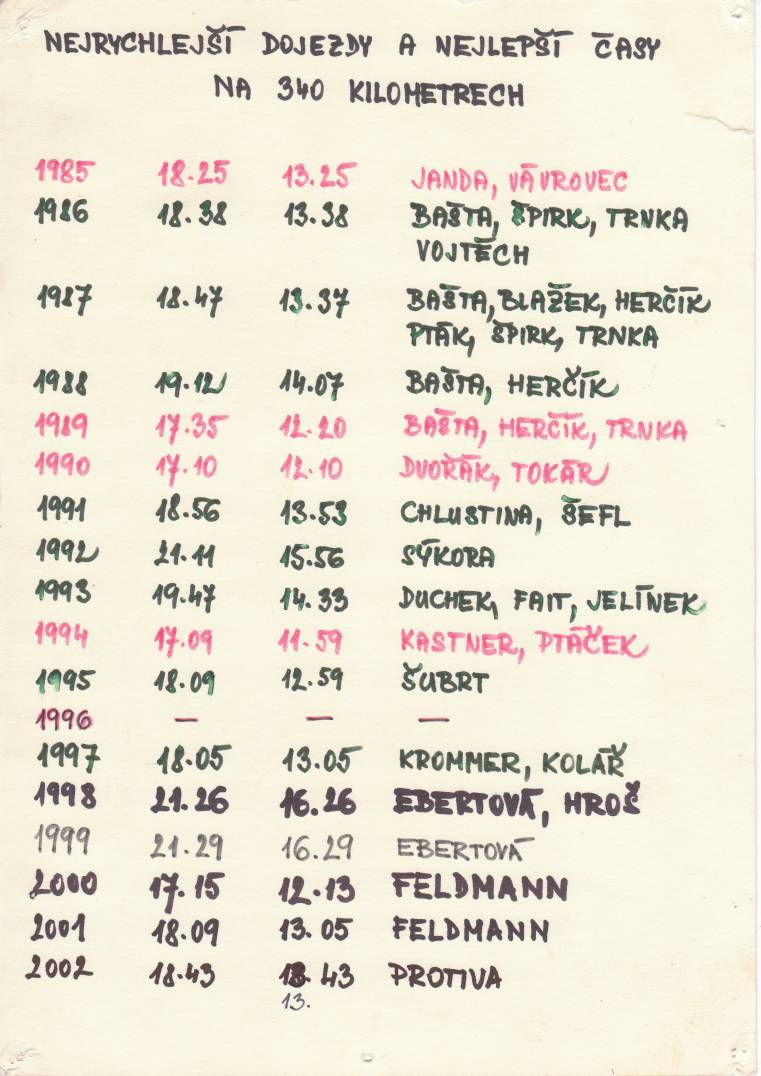 NEJRYCHLEJŠÍ DOJEZDY A NEJLEPŠÍ ČASY
NA 340 KILOMETRECH
1985 18.25 13.25 JANDA, VÁVROVEC
1986 18.38 13.38 BAŠTA, ŠPIRK, TRNKA
VOJTĚCH
1987 18.47 13.37 BAŠTA, BLAŽEK, HERČÍK
PTÁK, ŠPIRK, TRNKA
1988 19.12 14.07 BAŠTA, HERČÍK
1989 17.35 12.20 BAŠTA, HERČÍK, TRNKA
1990 17.10 12.10 DVOŘÁK, TOKÁR
1991 18.56 13.53 CHLUSTINA, ŠEFL
1992 21.11 15.56 SÝKORA
1993 19.47 14.33 DUCHEK, FAIT, JELÍNEK
1994 17.09 11.59 KASTNER, PTÁČEK
1995 18.09 12.59 ŠUBRT
1996 — — —
1997 18.05 13.05 KROMMER, KOLÁŘ
1998 21.26 16.26 EBERTOVÁ, HROŠ
1999 21.29 16.29 EBERTOVÁ
2000 17.15 12.13 FELDMANN
2001 18.09 13.05 FELDMANN
2002 18.43 13.43 PROTIVA
13.